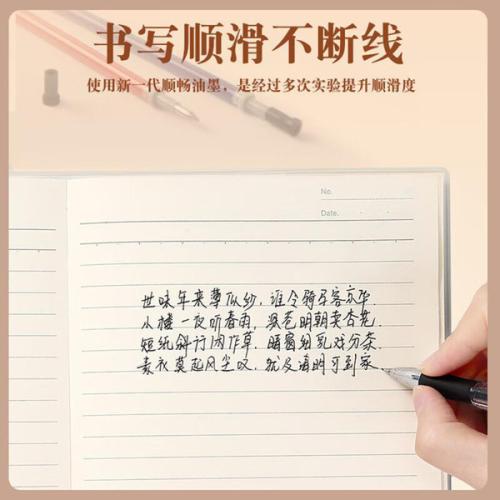 书写顺滑不断线
使用新一代顺畅油墨，是经过多次实验提升顺滑度
No.
Date.
世味年来薄似纱，谁令骑马客京华.
小楼一夜听春雨，深巷明朝卖杏花.
短纸斜行闲作草，晴窗细乳戏分茶.
素衣莫起风尘叹，犹及清明可到家.